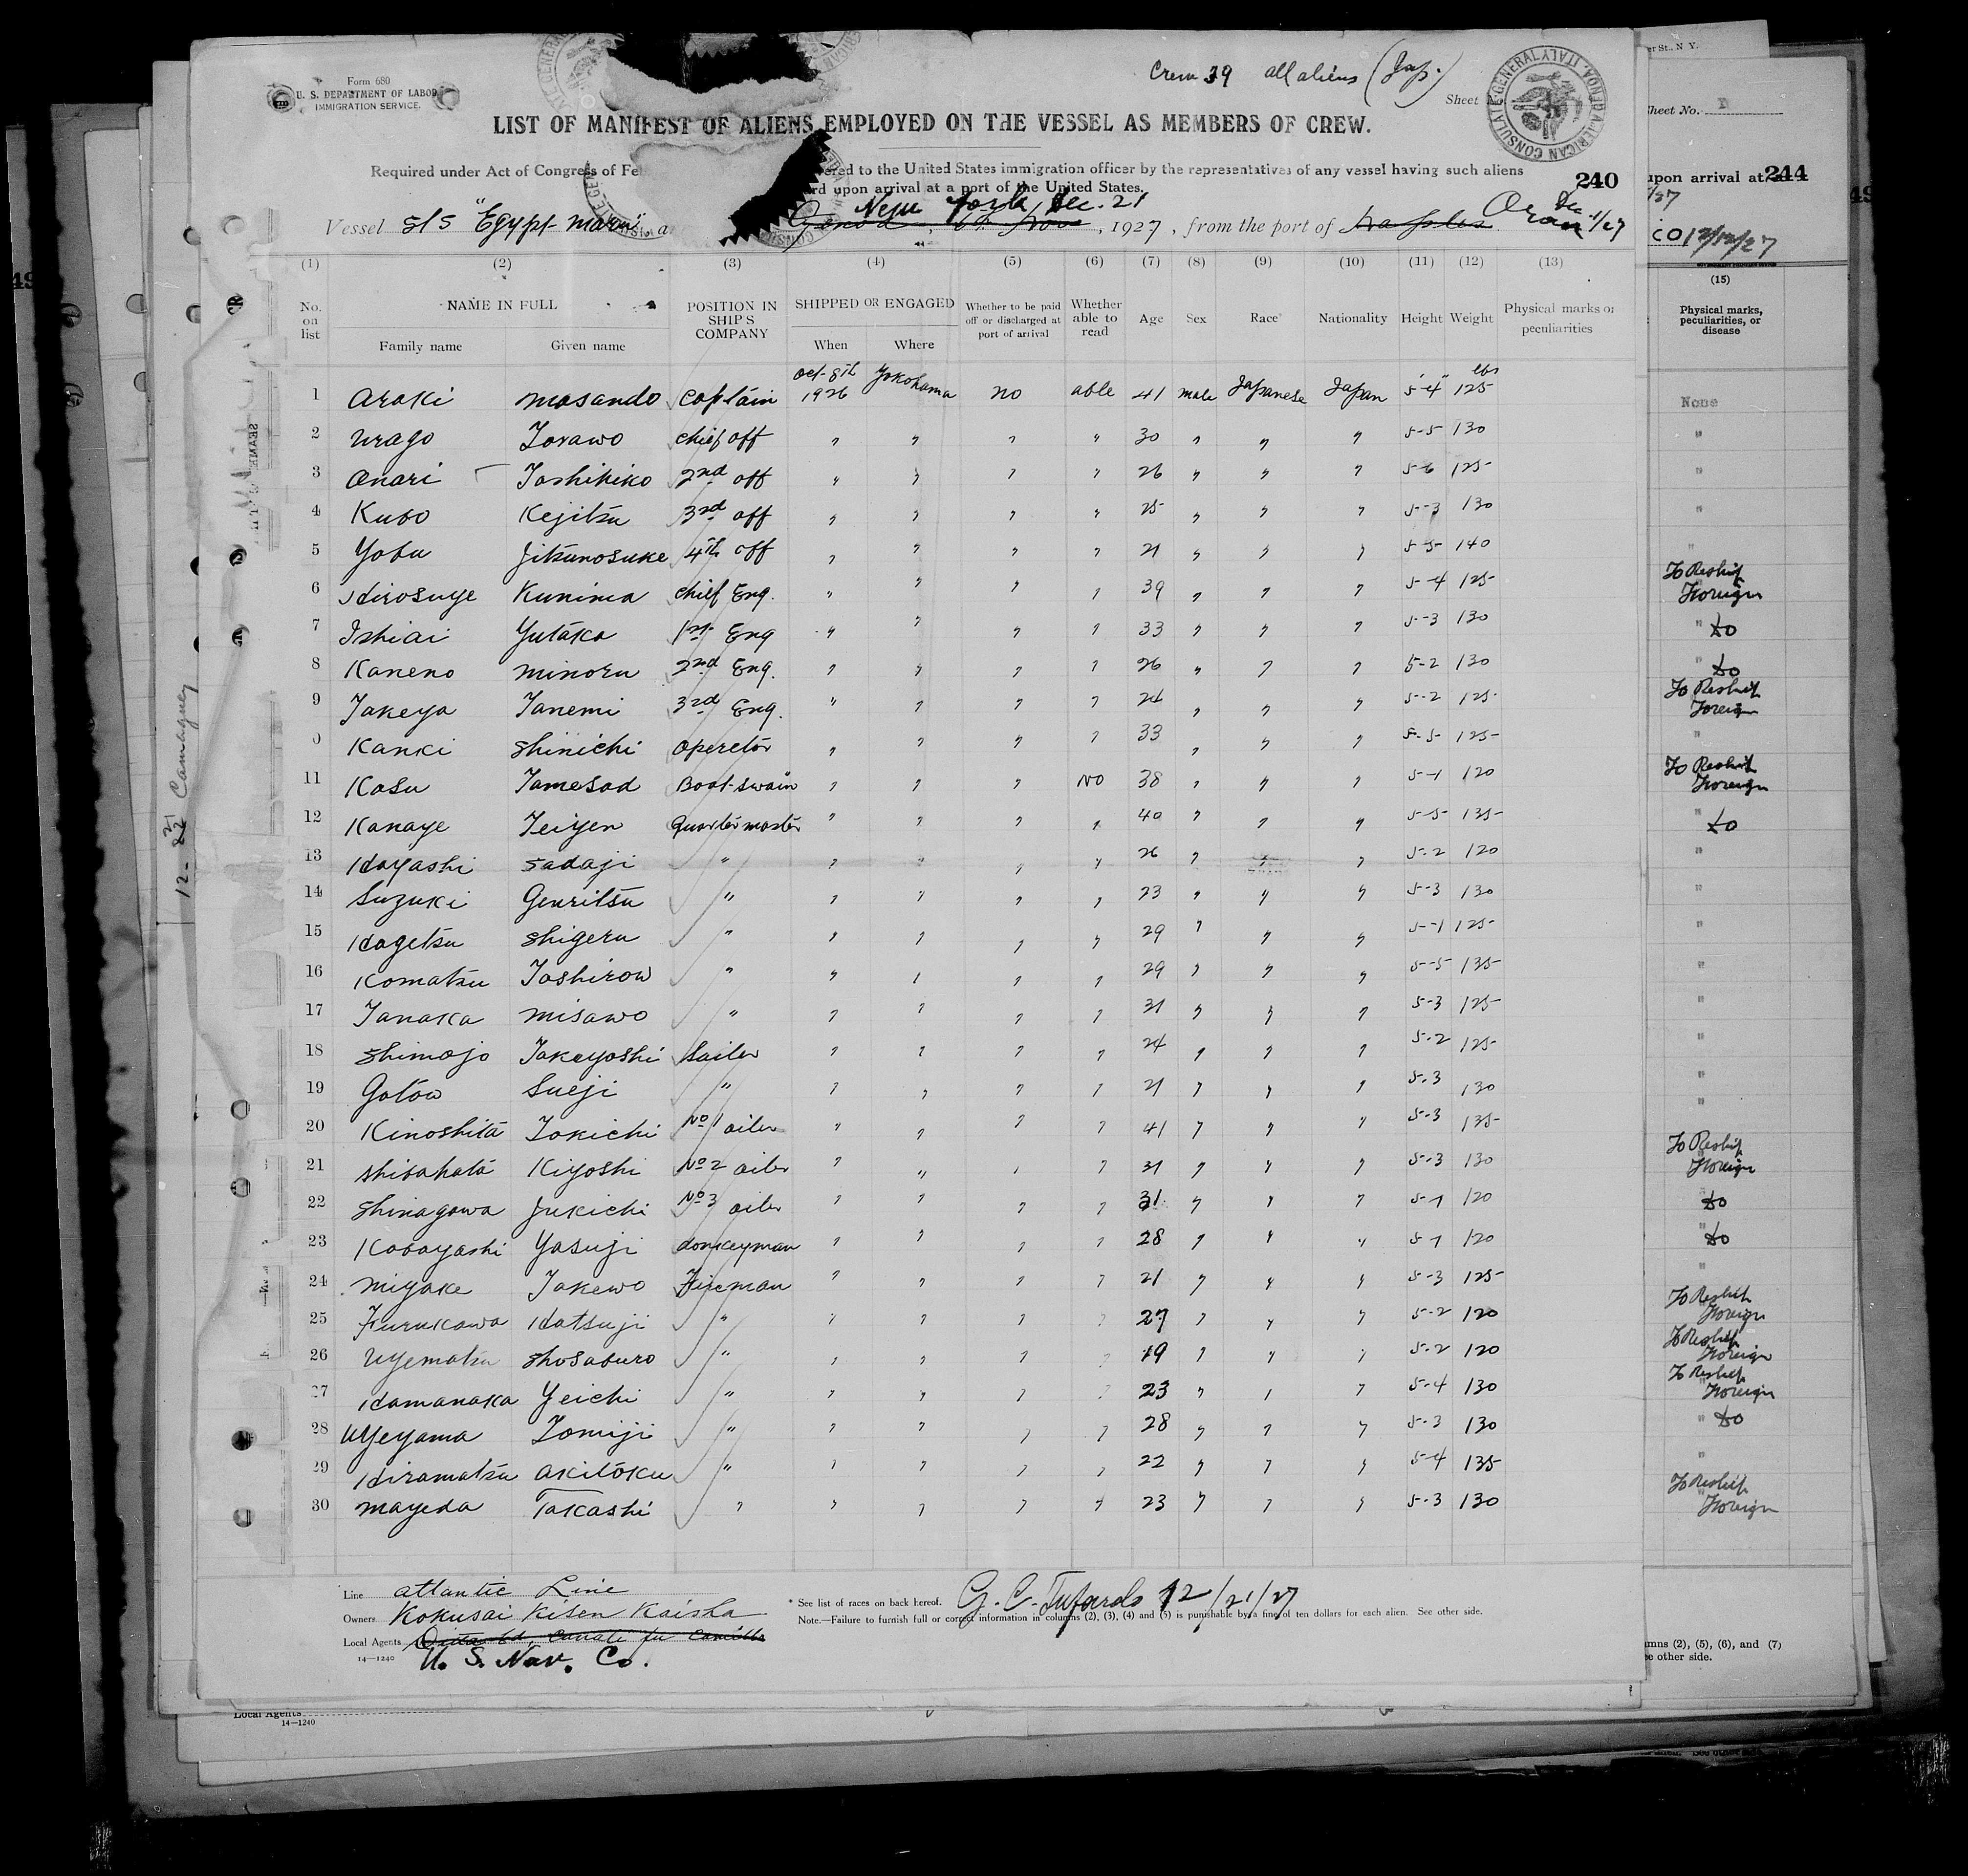 Form 680
U. S. DEPARTMENT OF LABOR
IMMIGRATION SERVICE
Crew 39 all aliens (Jap.)
Sheet
AMERICAN CONSULATE GENERAL GENOA, ITALY
LIST OF MANIFEST OF ALIENS EMPLOYED ON THE VESSEL AS MEMBERS OF CREW.
Required under Act of Congress of Fe ered to the United States immigration officer by the representatives of any vessel having such aliens
rd upon arrival at a port of the United States.
240
New York Dec. 21 Dec
Vessel S/S "Egypt maru" a Genoa, Nov , 1927, from the port of Naples Oran 1/27
(1) (2) (3) (4) (5) (6) (7) (8) (9) (10) (11) (12) (13)
No. on list NAME IN FULL POSITION IN SHIP'S COMPANY SHIPPED OR ENGAGED Whether to be paid off or discharged at port of arrival Whether able to read Age Sex Race* Nationality Height Weight Physical marks or peculiarities
Family name Given name When Where
1 Araki masando Captain Oct-8th 1926 Yokohama no able 41 male Japanese Japan 5'-4" 125 lbs
2 Urago Torawo chief off " " " " 30 " " " 5-5 130
3 Anari Toshihiko 2nd off " " " " 26 " " " 5-6 125
4 Kubo Kejitsu 3rd off " " " " 25 " " " 5-3 130
5 Yobu Jitsunosuke 4th off " " " " 21 " " " 5-5 140
6 Hirosuye Kunima chief Eng. " " " " 39 " " " 5-4 125
7 Ishiai Yutaka 1st Eng " " " " 33 " " " 5-3 130
8 Kaneno minoru 2nd Eng. " " " " 26 " " " 5-2 130
9 Takeya Tanemi 3rd Eng. " " " " 24 " " " 5-2 125
0 Kanki Shinichi operator " " " " 33 " " " 5-5 125
11 Kasu Tamesad Boat-swain " " " NO 38 " " " 5-1 120
12 Kanaye Teiyen Quartermaster " " " " 40 " " " 5-5 135
13 Hayashi Sadaji " " " " " 26 " " 5-2 120
14 Suzuki Genritsu " " " " " 23 " " " 5-3 130
15 Hagetsu Shigeru " " " " " 29 " " " 5-1 125
16 Komatsu Toshirow " " " " " 29 " " " 5-5 135
17 Tanaka misawo " " " " " 31 " " " 5-3 125
18 Shimojo Takeyoshi Sailor " " " " 24 " " " 5-2 125
19 Gotow Sueji " " " " " 21 " " " 5-3 130
20 Kinoshita Tokichi No 1 oiler " " " " 41 " " " 5-3 135
21 Shibahata Kiyoshi No 2 oiler " " " " 31 " " " 5-3 130
22 Shinagawa Jukichi No 3 oiler " " " " 31 " " " 5-1 120
23 Kobayashi Yasuji donkeyman " " " " 28 " " " 5-1 120
24 Miyake Takewo Fireman " " " " 21 " " " 5-3 125
25 Furukawa Hatsuji " " " " " 27 " " " 5-2 120
26 Uyematsu Shosaburo " " " " " 19 " " " 5-2 120
27 Hamanaka Yeichi " " " " " 23 " " " 5-4 130
28 Uyeyama Tomiji " " " " " 28 " " " 5-3 130
29 Hiramatsu Akitoku " " " " " 22 " " " 5-4 135
30 Mayeda Takashi " " " " " 23 " " " 5-3 130
Line Atlantic Line
Owners Kokusai Kisen Kaisha
Local Agents
U. S. Nav. Co.
14—1240
* See list of races on back hereof. G. C. Tufardo 12/21/27
Note.—Failure to furnish full or correct information in columns (2), (3), (4) and (5) is punishable by a fine of ten dollars for each alien. See other side.
12- 21 Camaguey
er St., N. Y.
heet No.
upon arrival at
244
/27
co 12/12/27
(15)
Physical marks, peculiarities, or disease
None
"
"
"
"
To Reship Foreign
" do
" do
To Reship Foreign
"
To Reship Foreign
" do
"
"
"
"
"
"
"
"
To Reship Foreign
do
do
"
To Reship Foreign
To Reship Foreign
To Reship Foreign
" do
"
To Reship Foreign
mns (2), (5), (6), and (7)
e other side.
Local Agents
14—1240